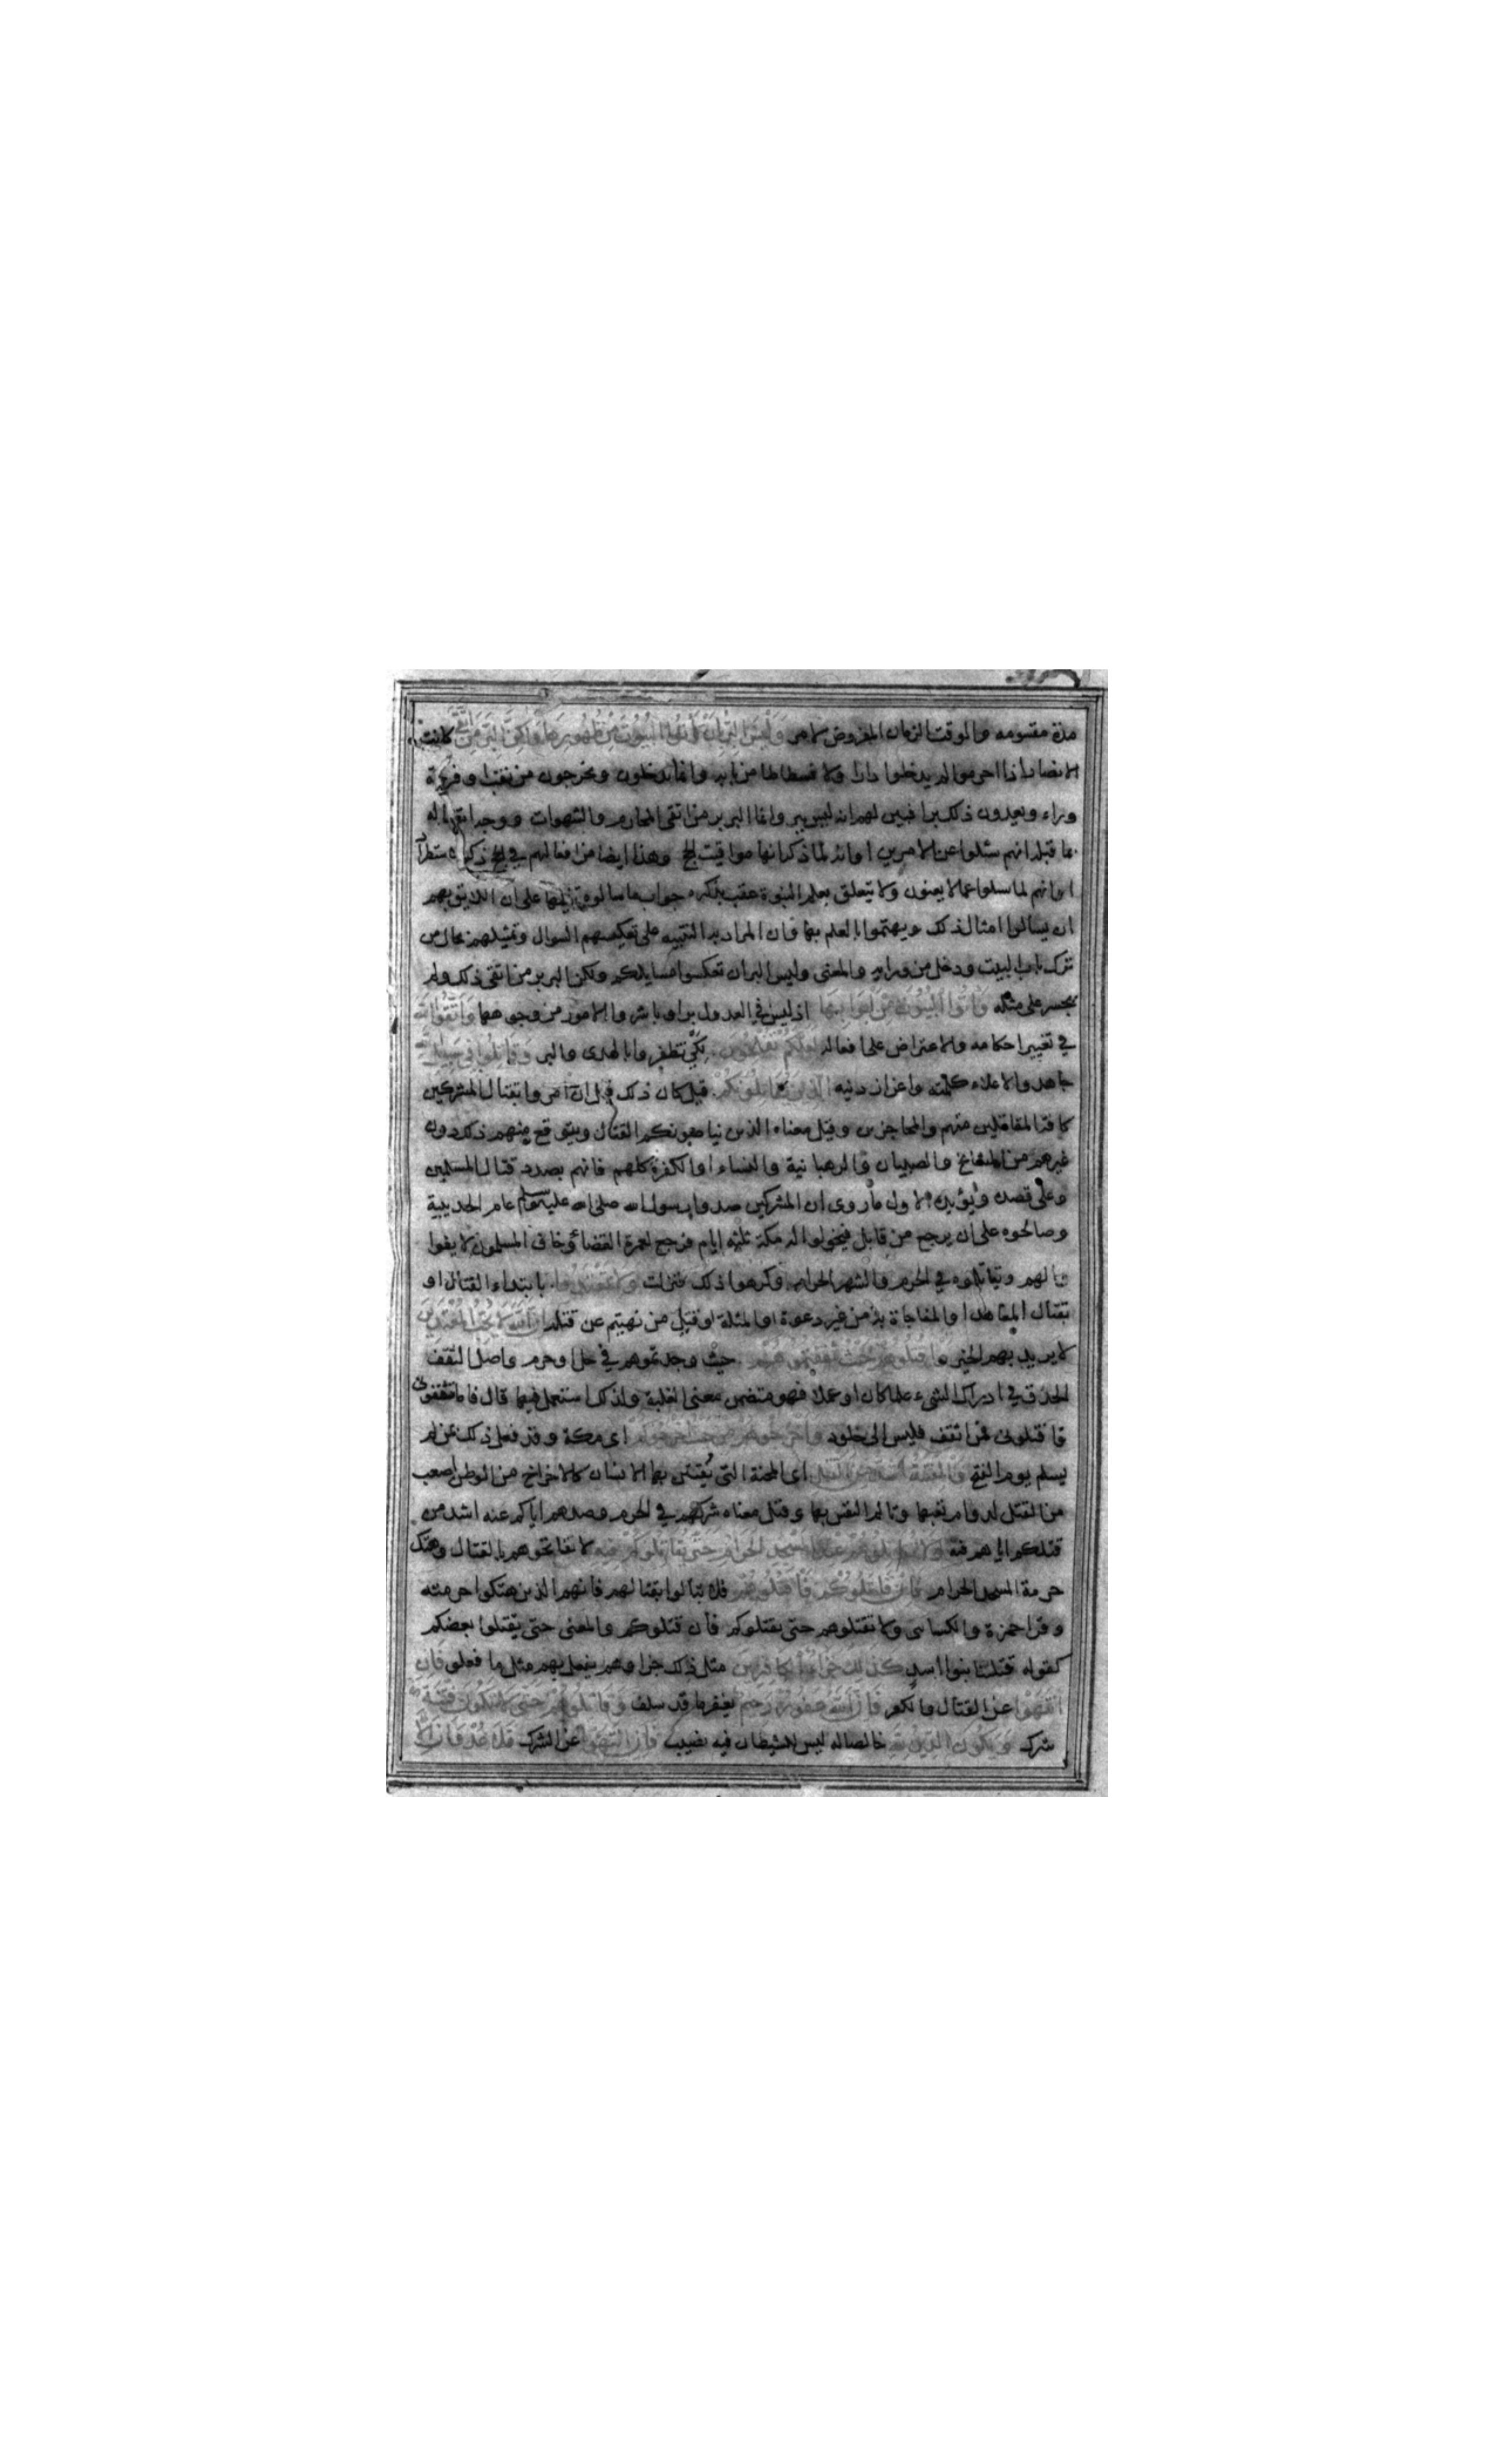 مدة مقسومه والوقت الزمان المفروض لامر وَلَيْسَ الْبِرُّ بِأَنْ تَأْتُوا الْبُيُوتَ مِنْ ظُهُورِهَا وَلَكِنَّ الْبِرَّ مَنِ اتَّقَى كانت
الانصار اذا احرموا لم يدخلوا دارا ولا فسطاطا من بابه وانما يدخلون ويخرجون من نقب او فرجة
وراء ويعدون ذلك برا فبين لهم انه ليس ببر وانما البر بر من اتقى المحارم والشهوات ووجه اتصاله
بما قبله انهم سئلوا عن الامرين او انه لما ذكر انها مواقيت الحج وهذا ايضا من افعالهم في الحج ذكره استطرادا
او انهم لما سئلوا عما لا يعنون ولا يتعلق بعلم النبوة عقب بذكره جواب ما سالوه تنبيها على ان اللايق بهم
ان يسالوا امثال ذلك ويهتموا بالعلم بها وان المراد به التنبيه على تعكيسهم السوال وتمثيلهم بحال من
ترك باب البيت ودخل من ورايه والمعنى وليس البر ان تعكسوا مسايلكم ولكن البر بر من اتقى ذلك ولم
يجسر على مثله وَأْتُوا الْبُيُوتَ مِنْ أَبْوَابِهَا اذ ليس في العدول بر او باشروا الامور من وجوهها وَاتَّقُوا اللَّهَ
في تغيير احكامه والاعتراض على افعاله لَعَلَّكُمْ تُفْلِحُونَ لكي تظفروا بالهدى والبر وَقَاتِلُوا فِي سَبِيلِ اللَّهِ
جاهدوا لاعلاء كلمته واعزاز دينه الَّذِينَ يُقَاتِلُونَكُمْ قيل كان ذلك قبل ان امروا بقتال المشركين
كافة المقاتلين منهم والمحاجزين وقيل معناه الذين يناصبونكم القتال ويتوقع منهم ذلك دون
غيرهم من المشايخ والصبيان والرهبانية والنساء او الكفرة كلهم فانهم بصدد قتال المسلمين
وعلى قصده ويؤيد الاول ما روى ان المشركين صدوا رسول الله صلى الله عليه وسلم عام الحديبية
وصالحوه على ان يرجع من قابل فيخلوا له مكة ثلثة ايام فرجع لعمرة القضاء وخاف المسلمون لا يفوا
لهم ويقاتلوه في الحرم والشهر الحرام وكرهوا ذلك فنزلت وَلَا تَعْتَدُوا بابتداء القتال او
بقتال المعاهد او المفاجاة به من غير دعوة او المثلة او قتل من نهيتم عن قتله إِنَّ اللَّهَ لَا يُحِبُّ الْمُعْتَدِينَ
لا يريد بهم الخير وَاقْتُلُوهُمْ حَيْثُ ثَقِفْتُمُوهُمْ حيث وجدتموهم في حل او حرم واصل الثقف
الحذق في ادراك الشيء علما كان او عملا فهو متضمن معنى الغلبة ولذلك استعمل فيها قال فاما تثقفوني
فاقتلوني فمن اثقف فليس الى خلود وَأَخْرِجُوهُمْ مِنْ حَيْثُ أَخْرَجُوكُمْ اى مكة وقد فعل ذلك بمن لم
يسلم يوم الفتح وَالْفِتْنَةُ أَشَدُّ مِنَ الْقَتْلِ اى المحنة التي يُفتتن بها الانسان كالاخراج من الوطن اصعب
من القتل لدوام تعبها وتالم النفس بها وقيل معناه شركهم في الحرم وصدهم اياكم عنه اشد من
قتلكم اياهم فيه وَلَا تُقَاتِلُوهُمْ عِنْدَ الْمَسْجِدِ الْحَرَامِ حَتَّى يُقَاتِلُوكُمْ فِيهِ لا تفاتحوهم بالقتال وهتك
حرمة المسجد الحرام فَإِنْ قَاتَلُوكُمْ فَاقْتُلُوهُمْ فلا تبالوا بقتالهم فانهم الذين هتكوا حرمته
وقرا حمزة والكسائى ولا تقتلوهم حتى يقتلوكم فان قتلوكم والمعنى حتى يقتلوا بعضكم
كقوله قتلتنا بنوا اسد كَذَلِكَ جَزَاءُ الْكَافِرِينَ مثل ذلك جزاوهم يفعل بهم مثل ما فعلو فَإِنِ
انْتَهَوْا عن القتال والكفر فَإِنَّ اللَّهَ غَفُورٌ رَحِيمٌ يغفر ما قد سلف وَقَاتِلُوهُمْ حَتَّى لَا تَكُونَ فِتْنَةٌ
شرك وَيَكُونَ الدِّينُ لِلَّهِ خالصا له ليس للشيطان فيه نصيب فَإِنِ انْتَهَوْا عن الشرك فَلَا عُدْوَانَ إِلَّا